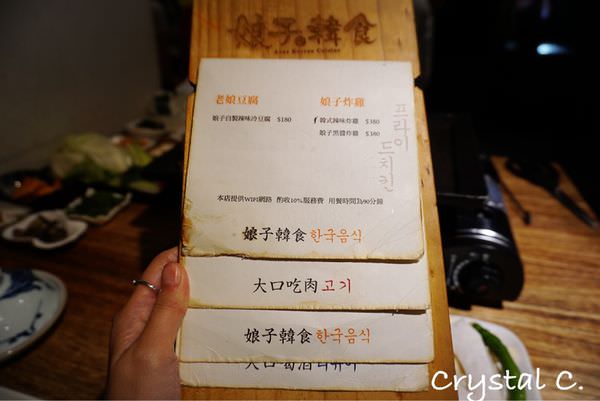 娘子韓食
老娘豆腐
娘子自製辣味冷豆腐 $180
娘子炸雞
韓式辣味炸雞 $380
娘子黑醬炸雞 $380
프라이드치킨
本店提供WIFI網路 酌收10%服務費 用餐時間為90分鐘
娘子韓食 한국음식
大口吃肉 고기
娘子韓食 한국음식
Crystal C.